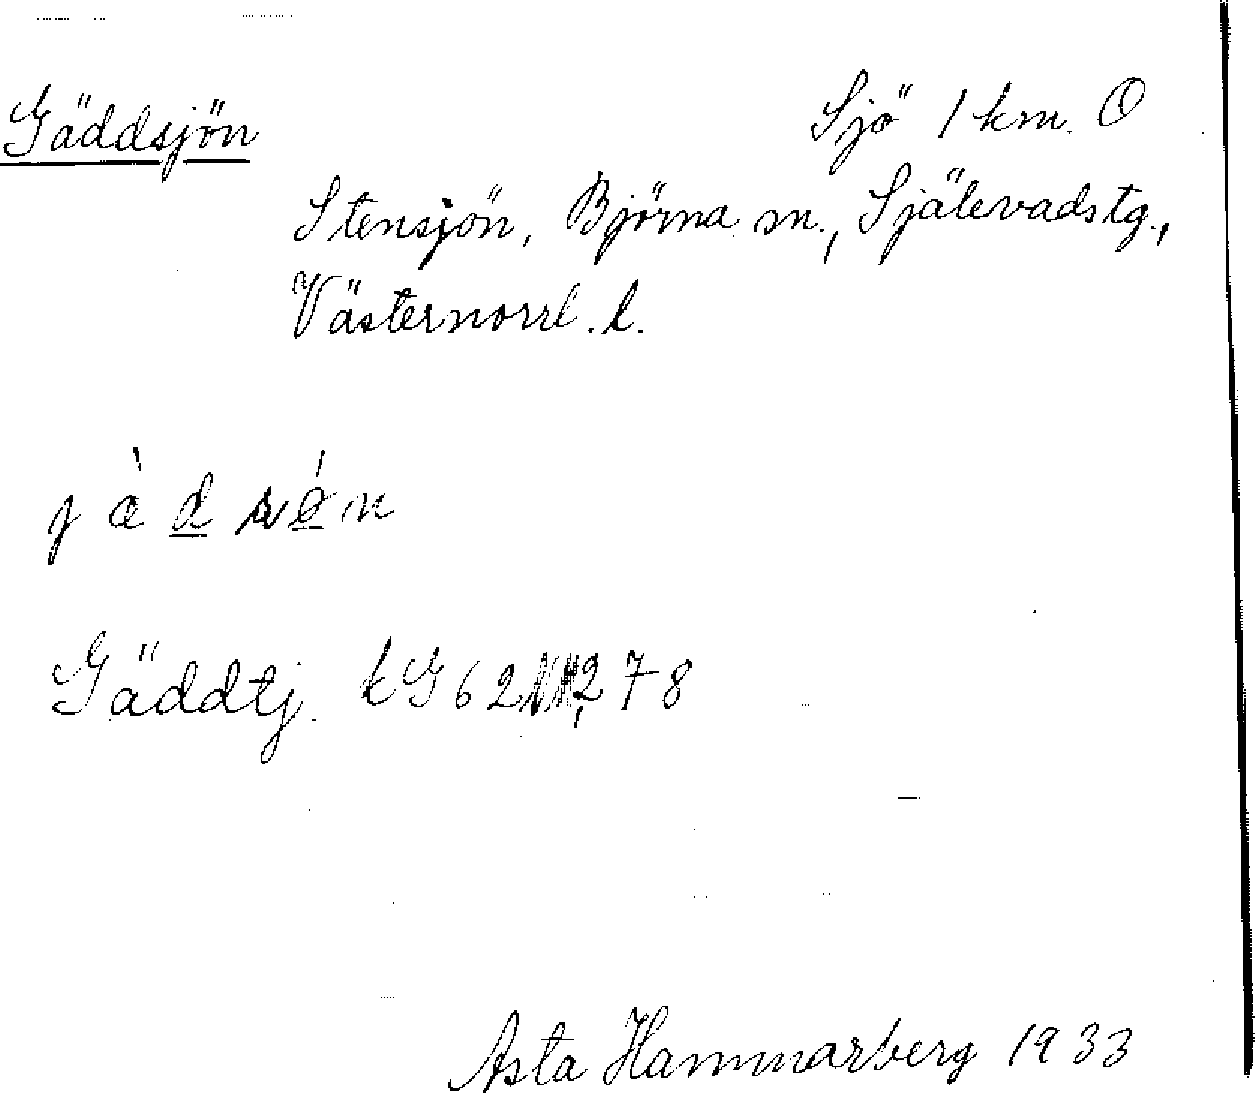 Gäddsjön
Sjö 1 km. O
Stensjön, Björna sn., Själevads tg.,
Västernorrl. l.
Gäddtj. kG 62 278
Asta Hammarberg 1933